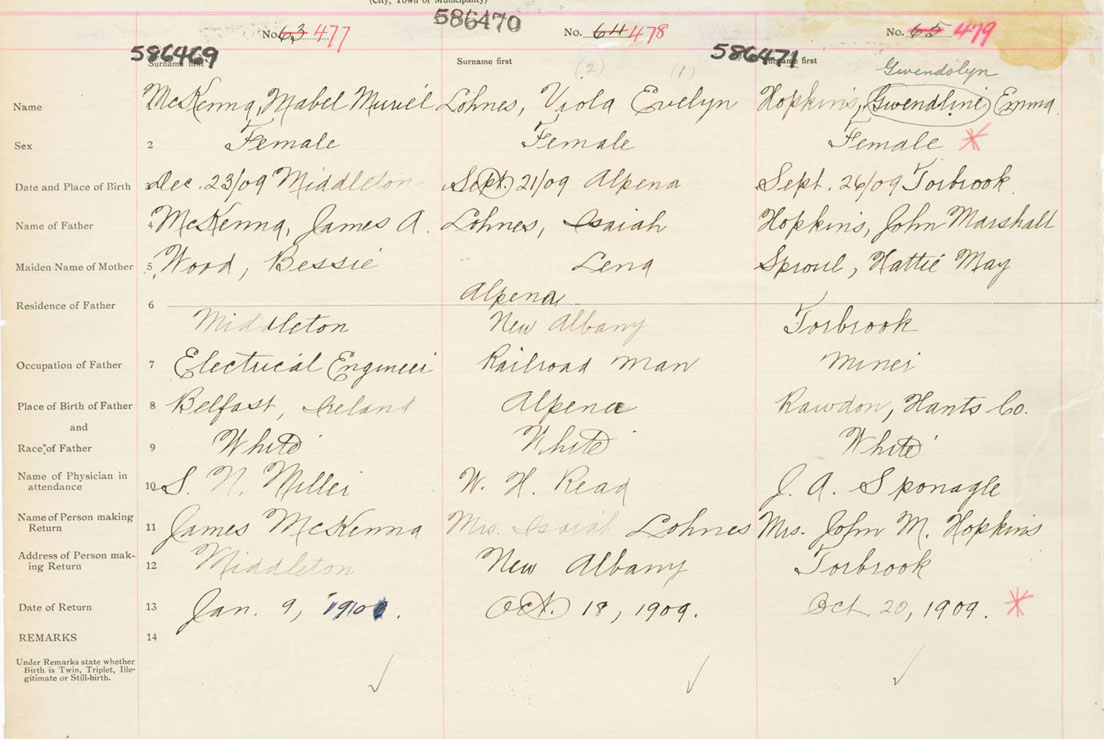 (City, Town or Municipality)
586470
No. 63 477
No. 64 478
No. 65 479
586469
586471
Surname first
Surname first
Surname first
(2) (1)
Gwendolyn
Name McKenna, Mabel Muriel Lohnes, Viola Evelyn Hopkins, Gwendline Emma
Sex 2 Female Female Female
Date and Place of Birth Dec. 23/09 Middleton Sept. 21/09 Alpena Sept. 26/09 Torbrook
Name of Father 4 McKenna, James A. Lohnes, Isaiah Hopkins, John Marshall
Maiden Name of Mother 5 Wood, Bessie Lena Sproul, Hattie May
Alpena
Residence of Father 6
Middleton New Albany Torbrook
Occupation of Father 7 Electrical Engineer Railroad Man Miner
Place of Birth of Father 8 Belfast, Ireland Alpena Rawdon, Hants Co.
and
Race of Father 9 White White White
Name of Physician in
attendance 10 S. N. Miller W. H. Read J. A. Sponagle
Name of Person making
Return 11 James McKenna Mrs. Isaiah Lohnes Mrs. John M. Hopkins
Address of Person mak-
ing Return 12 Middleton New Albany Torbrook
Date of Return 13 Jan. 9, Oct. 18, 1909. Oct. 20, 1909.
REMARKS 14
Under Remarks state whether
Birth is Twin, Triplet, Ille-
gitimate or Still-birth.